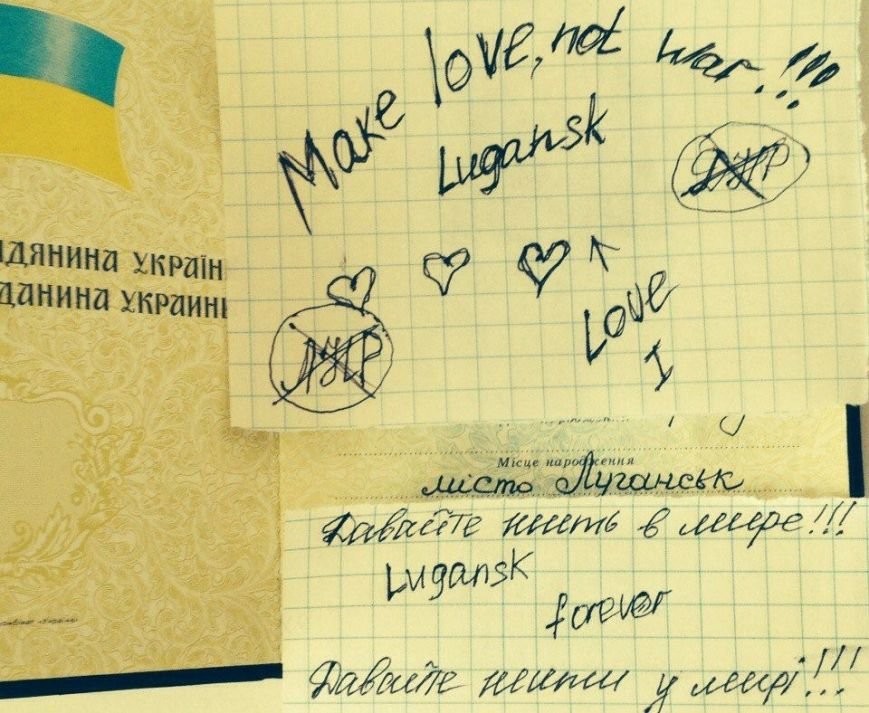 Make love, not war.!!!
Lugansk
ДНР
ЛНР
Love
I
ДЯНИНА УКРАЇН
ДАНИНА УКРАИНЫ
Місце народження
місто Луганськ
Давайте жить в мире!!!
Lugansk
forever
Давайте жити у мирі!!!